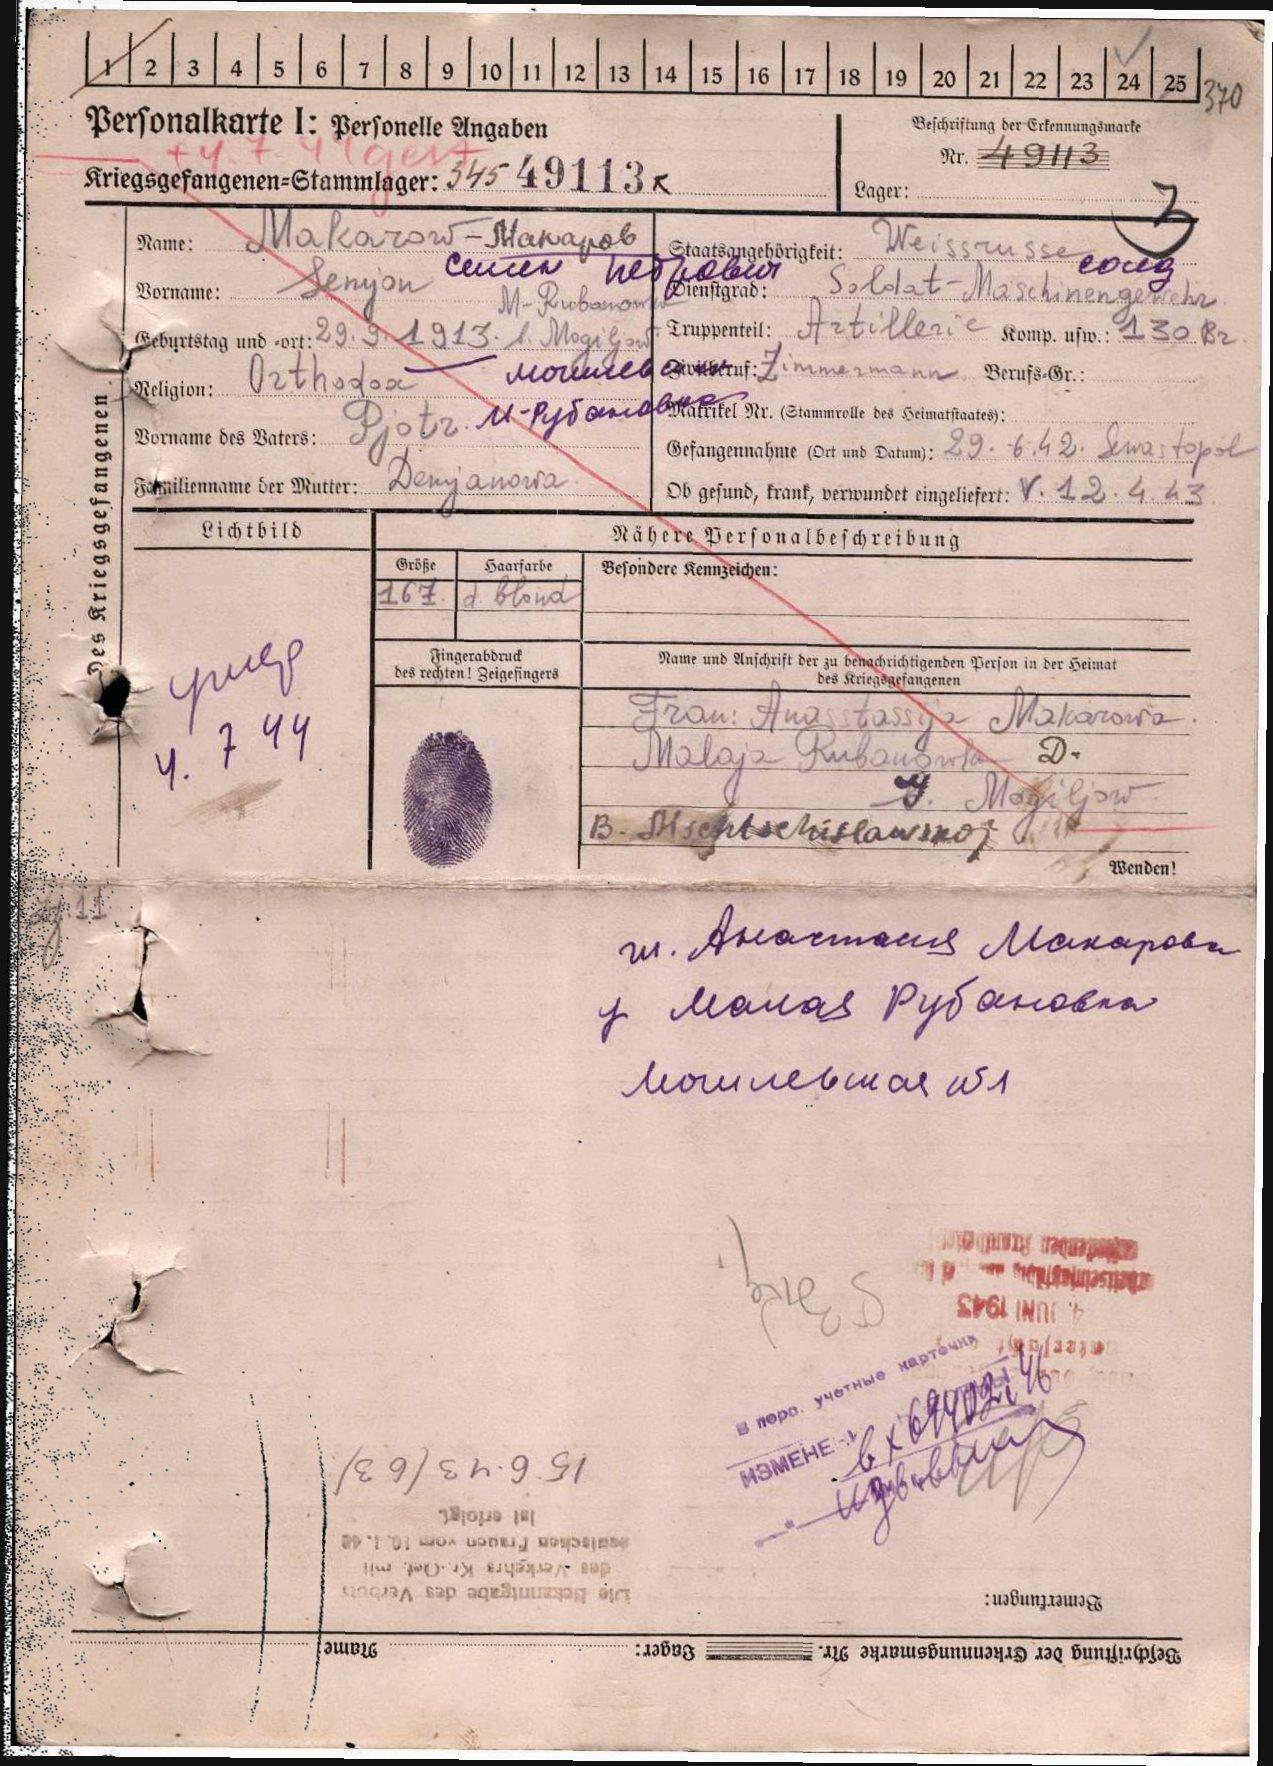 1 2 3 4 5 6 7 8 9 10 11 12 13 14 15 16 17 18 19 20 21 22 23 24 25
370
Personalkarte I: Personelle Angaben
+ 4. 7. 44 gest
Kriegsgefangenen=Stammlager: 345 49113 K
Beschriftung der Erkennungsmarke
Nr. 49113
Lager:
Des Kriegsgefangenen
Name: Makarow - Макаров
Семен Петрович
Vorname: Senjon
M-Rubanowka
Geburtstag und -ort: 29.9.1913. b. Mogiljow
Religion: Orthodox
Могилевская
М-Рубановка
Vorname des Vaters: Pjotr
Familienname der Mutter: Demjanowa
Staatsangehörigkeit: Weissrusse
солд
Dienstgrad: Soldat-Maschinengewehr
Truppenteil: Artillerie Komp. usw.: 130 Br
Zivilberuf: Zimmermann Berufs-Gr.:
Matrikel Nr. (Stammrolle des Heimatstaates):
Gefangennahme (Ort und Datum): 29. 6. 42. Sewastopol
Ob gesund, krank, verwundet eingeliefert: V. 12. 4. 43
Lichtbild
умер
4. 7 44
Nähere Personalbeschreibung
Größe
Haarfarbe
Besondere Kennzeichen:
167. d. blond
Fingerabdruck
des rechten! Zeigefingers
Name und Anschrift der zu benachrichtigenden Person in der Heimat
des Kriegsgefangenen
Frau: Anasstassija Makarowa.
Malaja Rubanowka D.
G. Mogiljow.
B. Mschtschislawskoj
Wenden!
ж. Анастасия Макарова
д Малая Рубановка
Могилевская обл
4. JUNI 1943
В перв. учетные карточки
ИЗМЕНЕ
вх 69402 46
15.6.43 (63)
Die Bekanntgabe des Verbots
des Verkehrs Kr.-Gef. mit
deutschen Frauen vom 10. 1. 40
ist erfolgt.
Bemerkungen:
Beschriftung der Erkennungsmarke Nr. Lager: Name: